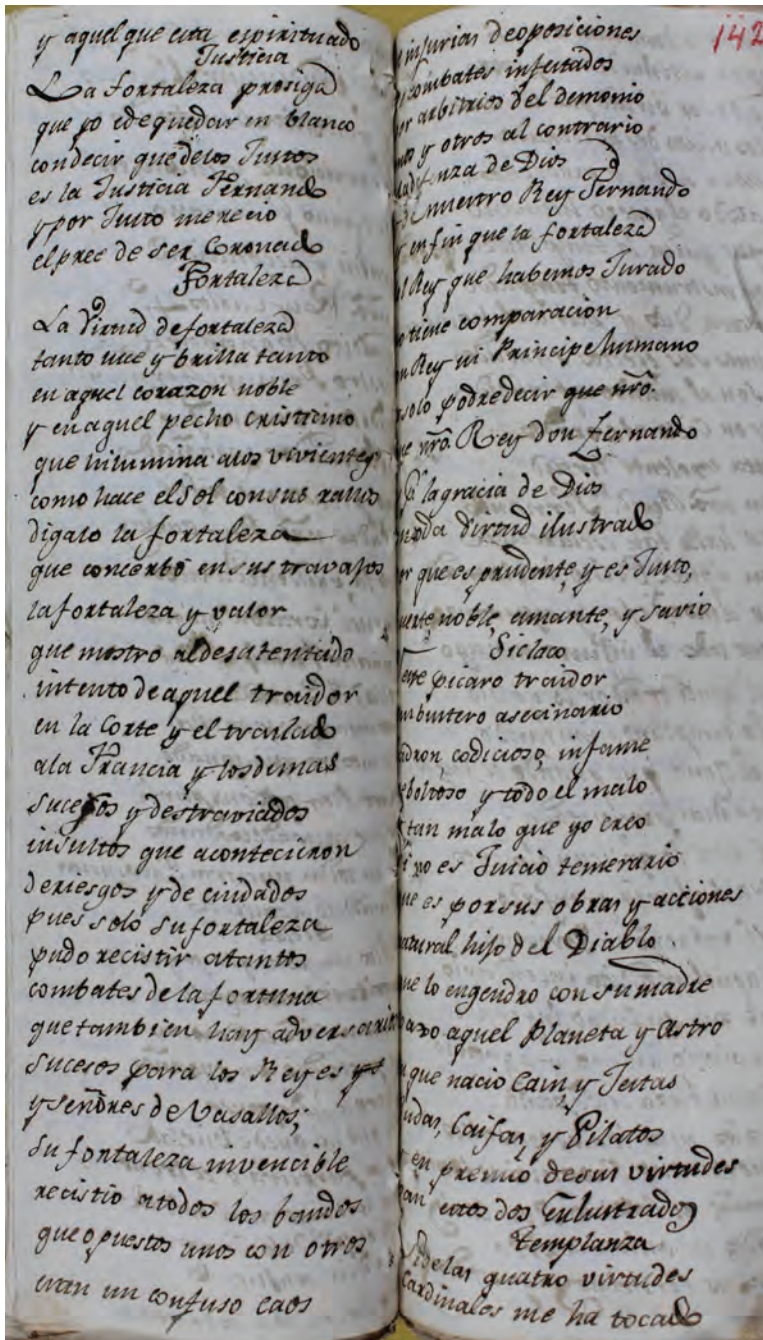 y aquel que esta espirituado
Justicia
La fortaleza prosiga
que yo e de quedar en blanco
con decir que de los Justos
es la Justicia Fernando
y por Justo merecio
el pree de ser Coronado
Fortaleza
La Virtud de fortaleza
tanto luce y brilla tanto
en aquel corazon noble
y en aquel pecho cristiano
que hilumina a los vivientes
como hace el Sol con sus rallos
digalo la fortaleza
que conserbó en sus travajos
la fortaleza y valor
que mostro al desatentado
intento de aquel traidor
en la Corte y el traslado
a la Francia y los demas
sucesos y destraviados
insultos que acontecieron
de riesgos y de cuidados
pues solo su fortaleza
pudo recistir a tantos
combates de la fortuna
que tambien hay adversarios
sucesos para los Reyes
y señores de Vasallos;
su fortaleza invencible
recistio a todos los bandos
que opuestos unos con otros
eran un confuso caos
142
injurias de oposiciones
combates infestados
por arbitrios del demonio
unos y otros al contrario
la difenza de Dios
de nuestro Rey Fernando
en fin que la fortaleza
Rey que habemos Jurado
no tiene comparacion
Rey ni Principe humano
solo podre decir que nrô.
que nrô. Rey don Fernando
la gracia de Dios
toda virtud ilustrado
por que es prudente, y es Justo,
fuerte, noble, amante, y savio
Siclaco
este picaro traidor
embustero asecinario
ladron, codicioso, infame
reboltoso y todo el malo
tan malo que yo creo
si no es Juicio temerario
que es por sus obras y acciones
natural hijo del Diablo
que lo engendro con su madre
aquel Planeta y Astro
que nacio Cain, y Jestas
Judas, Caifas, y Pilatos
en premio de sus virtudes
estos dos enlustrados
templanza
de las quatro virtudes
Cardinales me ha tocado